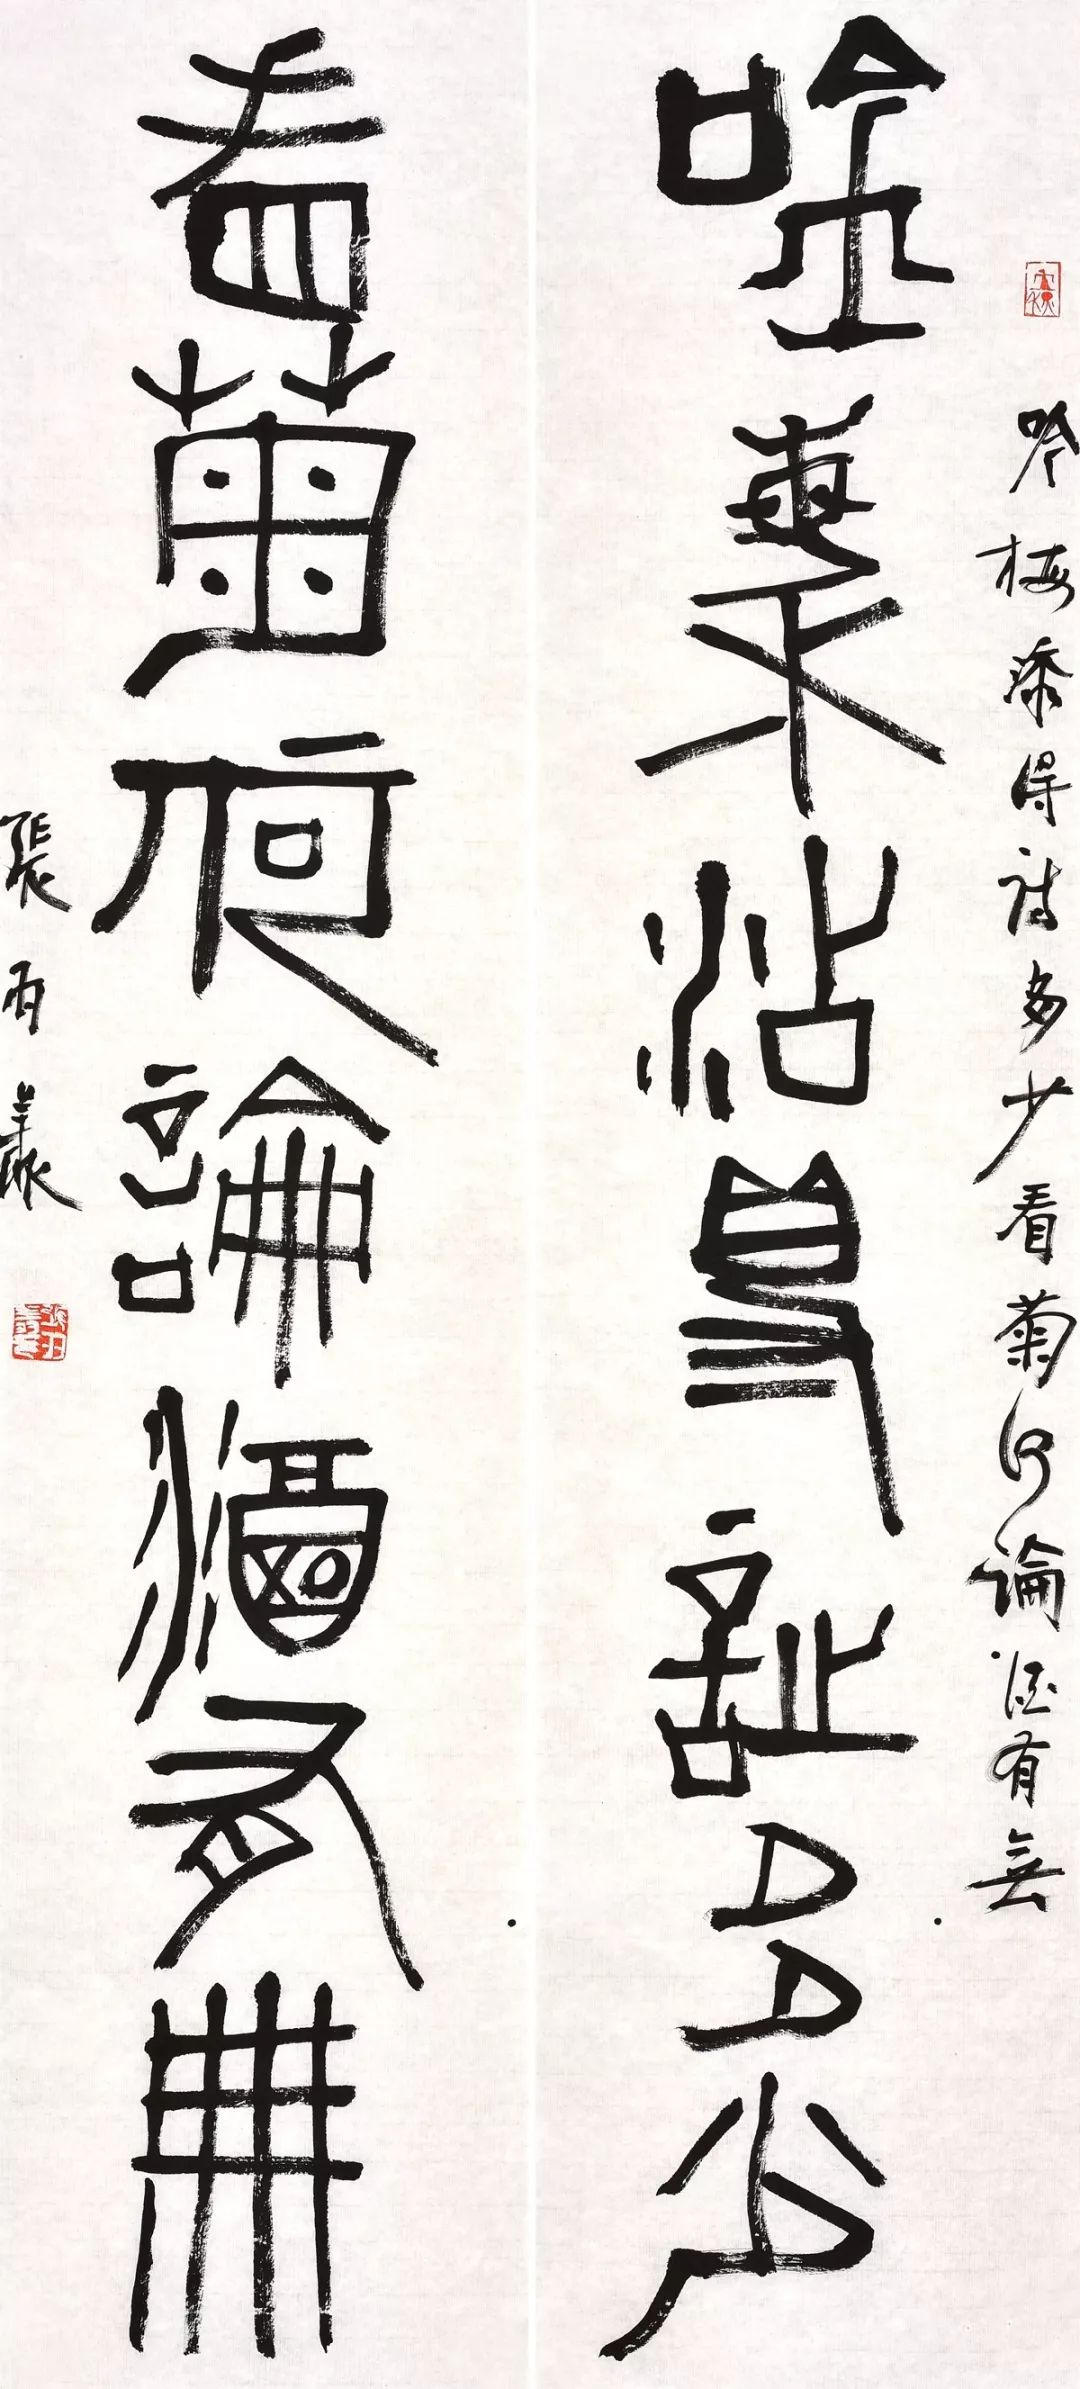 吟梅添得詩多少看菊何論酒有無
吟梅沾得詩多少
看菊何論酒有無
張